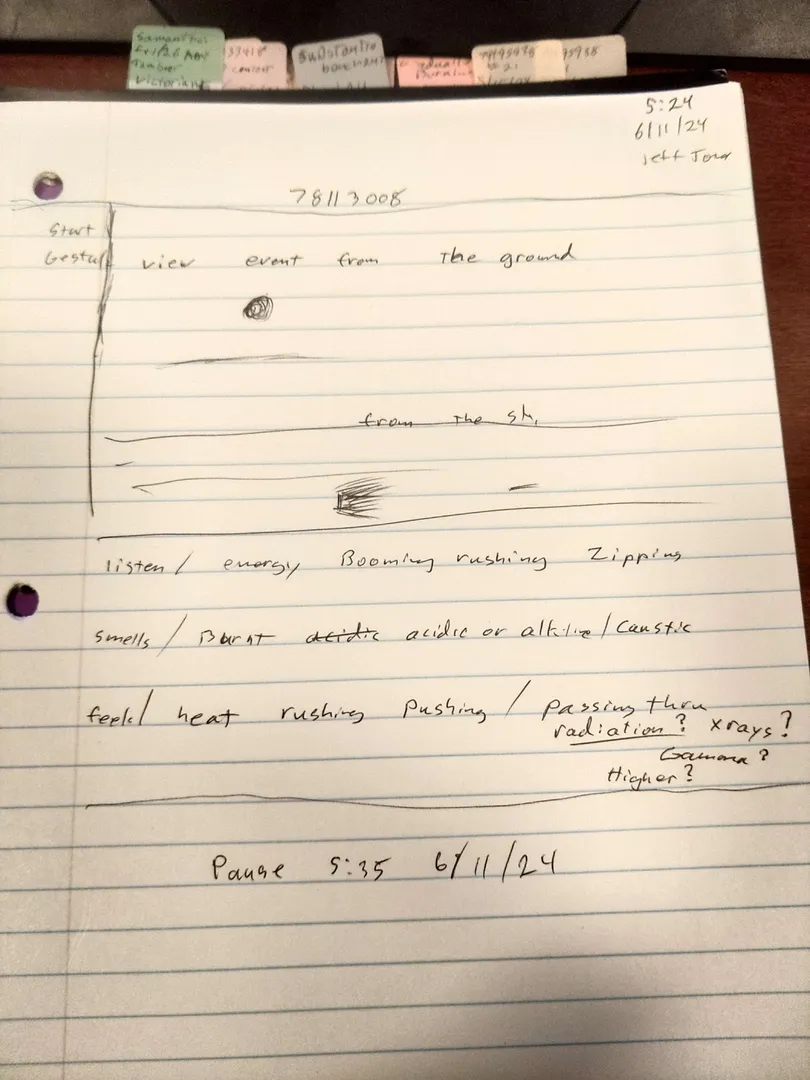 Samantha
Fri/26 AM
33418
Substantia
bookmark
Victorian
5:24
6/11/24
Jeff
78113008
Start
Gestal
view event from The ground
from the sk
listen / energy Booming rushing Zipping
smells / Burnt acidic acidic or alkline / Caustic
feel / heat rushing pushing / passing thru
radiation? xrays?
Gamma?
Higher?
Pause 5:35 6/11/24